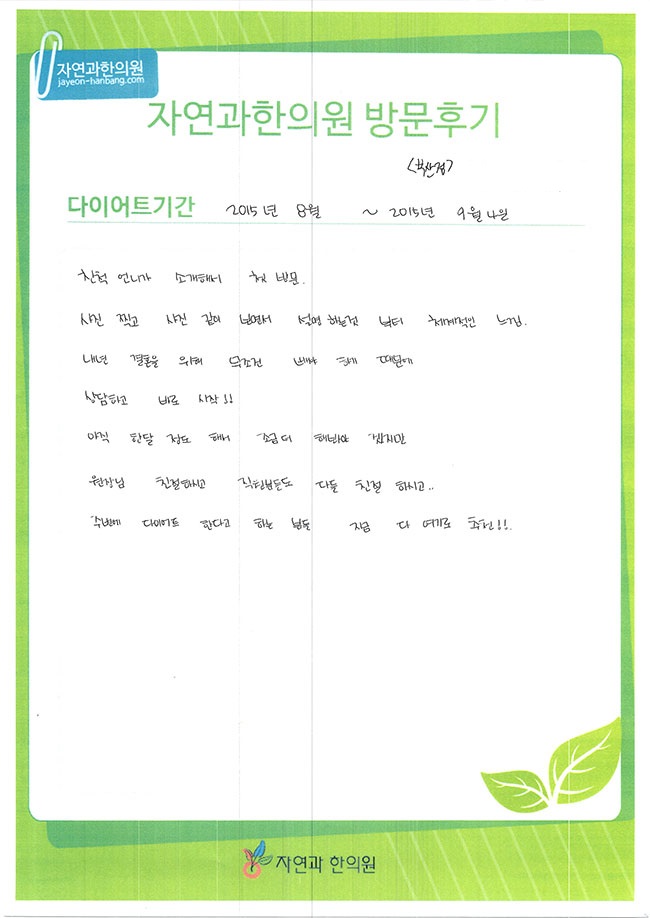 자연과한의원
jayeon-hanbang.com
자연과한의원 방문후기
<부산점>
다이어트기간 2015년 8월 ~ 2015년 9월 4일
친척 언니가 소개해서 첫 방문.
사진 찍고 사진 같이 보면서 설명 하는것 부터 체계적인 느낌.
내년 결혼을 위해 무조건 빼야 하기 때문에
상담하고 바로 시작!!
아직 한달 정도 해서 조금더 해봐야 겠지만
원장님 친절하시고 직원분들도 다들 친절 하시고..
주변에 다이어트 한다고 하는 분들 지금 다 여기로 추천!!.
자연과 한의원